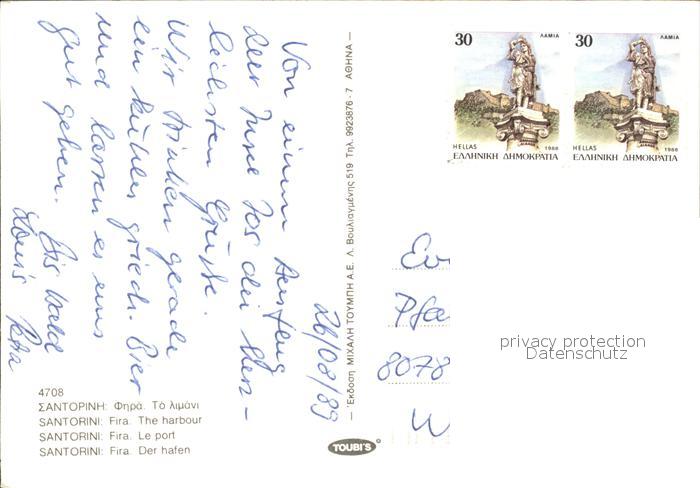 26/08/89
Von einem Ausflug
der Insel Ios die herz-
lichsten Grüße.
Wir trinken gerade
ein kühles griech. Bier
und lassen es uns
gut gehen. Bis bald
4708
ΣΑΝΤΟΡΙΝΗ: Φηρά. Τὸ λιμάνι
SANTORINI: Fira. The harbour
SANTORINI: Fira. Le port
SANTORINI: Fira. Der hafen
— Έκδοση ΜΙΧΑΛΗ ΤΟΥΜΠΗ Α.Ε. Λ. Βουλιαγμένης 519 Τηλ. 9923876 - 7 ΑΘΗΝΑ —
TOUBI'S
30 ΛΑΜΙΑ
HELLAS 1988
ΕΛΛΗΝΙΚΗ ΔΗΜΟΚΡΑΤΙΑ
30 ΛΑΜΙΑ
HELLAS 1988
ΕΛΛΗΝΙΚΗ ΔΗΜΟΚΡΑΤΙΑ
Pfa
8078
W
privacy protection
Datenschutz